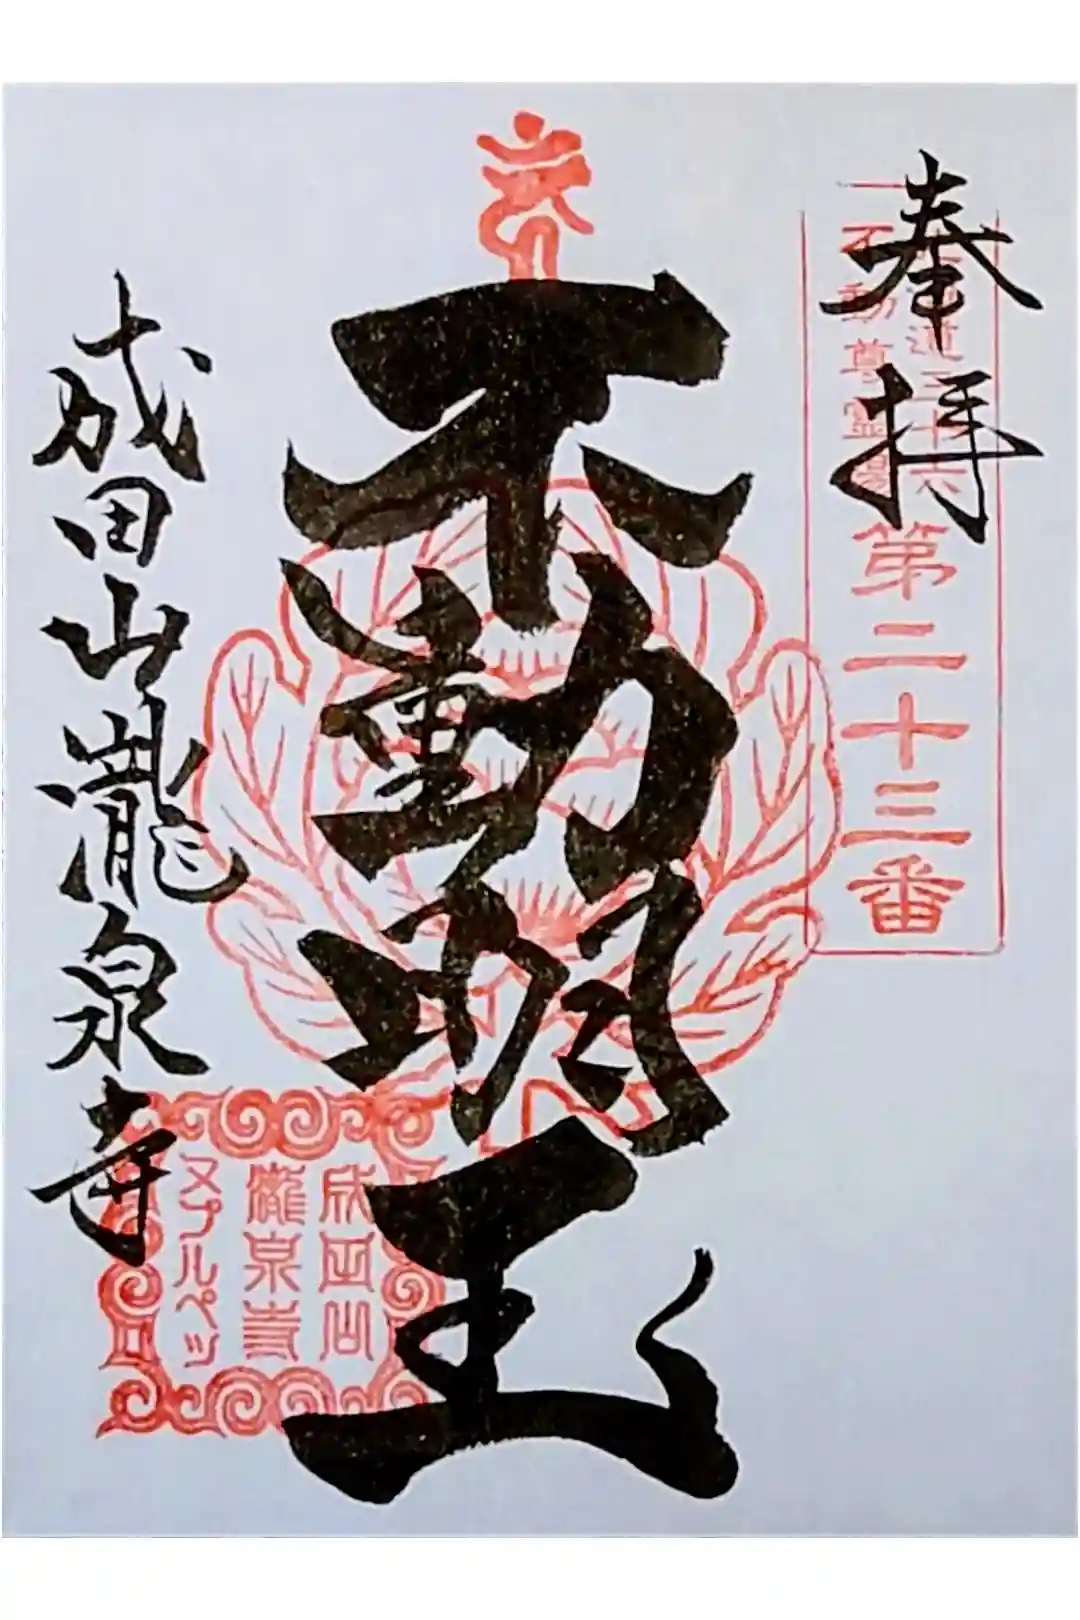 奉拝
北海道三十六
不動尊霊場
第二十三番
不動明王
成田山瀧泉寺
成田山
瀧泉寺
ヌプルペツ